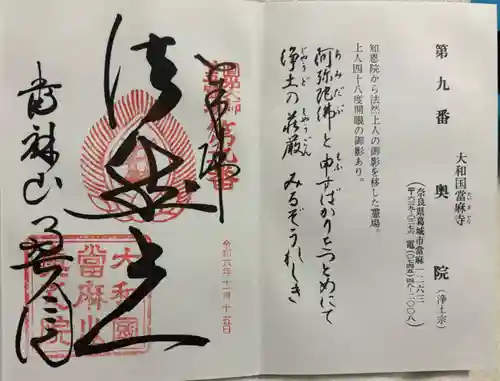 第九番 大和国當麻寺 奥院 (浄土宗)
たいまでら
(奈良県葛城市當麻一二六三
〒六三九―〇二七六 電(〇七四五)四八―二〇〇八)
知恩院から法然上人の御影を移した霊場。
上人四十八度開眼の御影あり。
あみだぶ
もふ
阿弥陀佛と申すばかりをつとめにて
じやうど しやうごん
浄土の荘厳みるぞうれしき
第九番
法然上
當麻山
奥之院
大和國
當麻山
奥之院
令和六年十一月十五日